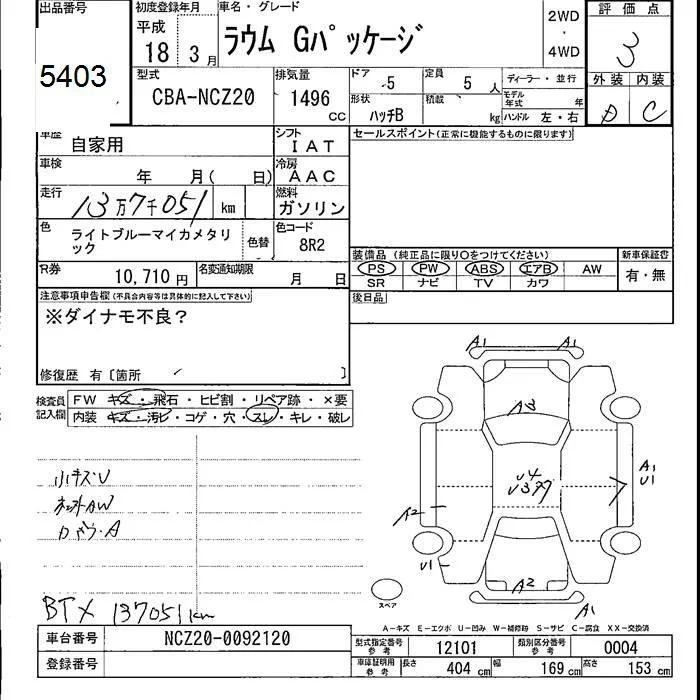 出品番号 初度登録年月 車名・グレード 評価点
5403
平成 18 3月 ラウム Gパッケージ 2WD ・ 4WD 3
型式 CBA-NCZ20 排気量 1496 CC
ドア 5 定員 5人 ディーラー・並行 外装 内装
形状 ハッチB 積載 kg モデル年式 年 ハンドル 左・右 D C
車歴 自家用 シフト IAT セールスポイント(正常に機能するものに限ります)
車検 年 月( 日) 冷房 AAC
走行 13万7千051 km 燃料 ガソリン
色 ライトブルーマイカメタリック 色替 色コード 8R2
装備品 (純正品に限り○をつけてください) 新車保証書
PS PW ABS エアB AW 有・無
SR ナビ TV カワ
R券 10,710円 名変通知期限 月 日 後日品
注意事項申告欄(不具合内容等は具体的に記入して下さい)
※ダイナモ不良?
修復歴 有〔箇所 〕
検査員記入欄 FW キズ・飛石・ヒビ割・リペア跡・×要
内装 キズ・汚レ・コゲ・穴・スレ・キレ・破レ
A1
A3
小キズ・U
U4
A1
U1
A2
U1
A2
スペア
A1
BTX 137051km
A-キズ E-エクボ U-凹み W-補修跡 S-サビ C-腐食 XX-交換済
車台番号 NCZ20-0092120
登録番号
型式指定番号 参考 12101 類別区分番号 参考 0004
車庫証明用 参考 長さ 404 cm 幅 169 cm 高さ 153 cm